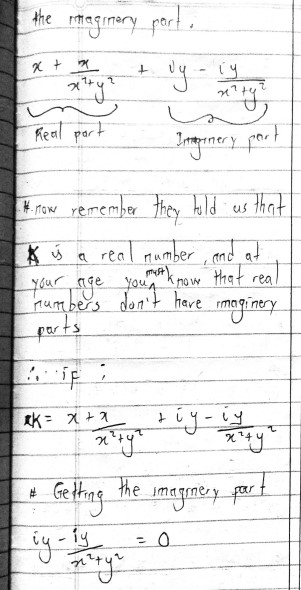 the imaginery part.
x + x/x²+y² + iy - iy/x²+y²
Real part Imaginery part
# now remember they told us that
K is a real number, and at
your age you must know that real
numbers don't have imaginery
parts
∴ if ;
K = x + x/x²+y² + iy - iy/x²+y²
# Getting the imaginery part
iy - iy/x²+y² = 0